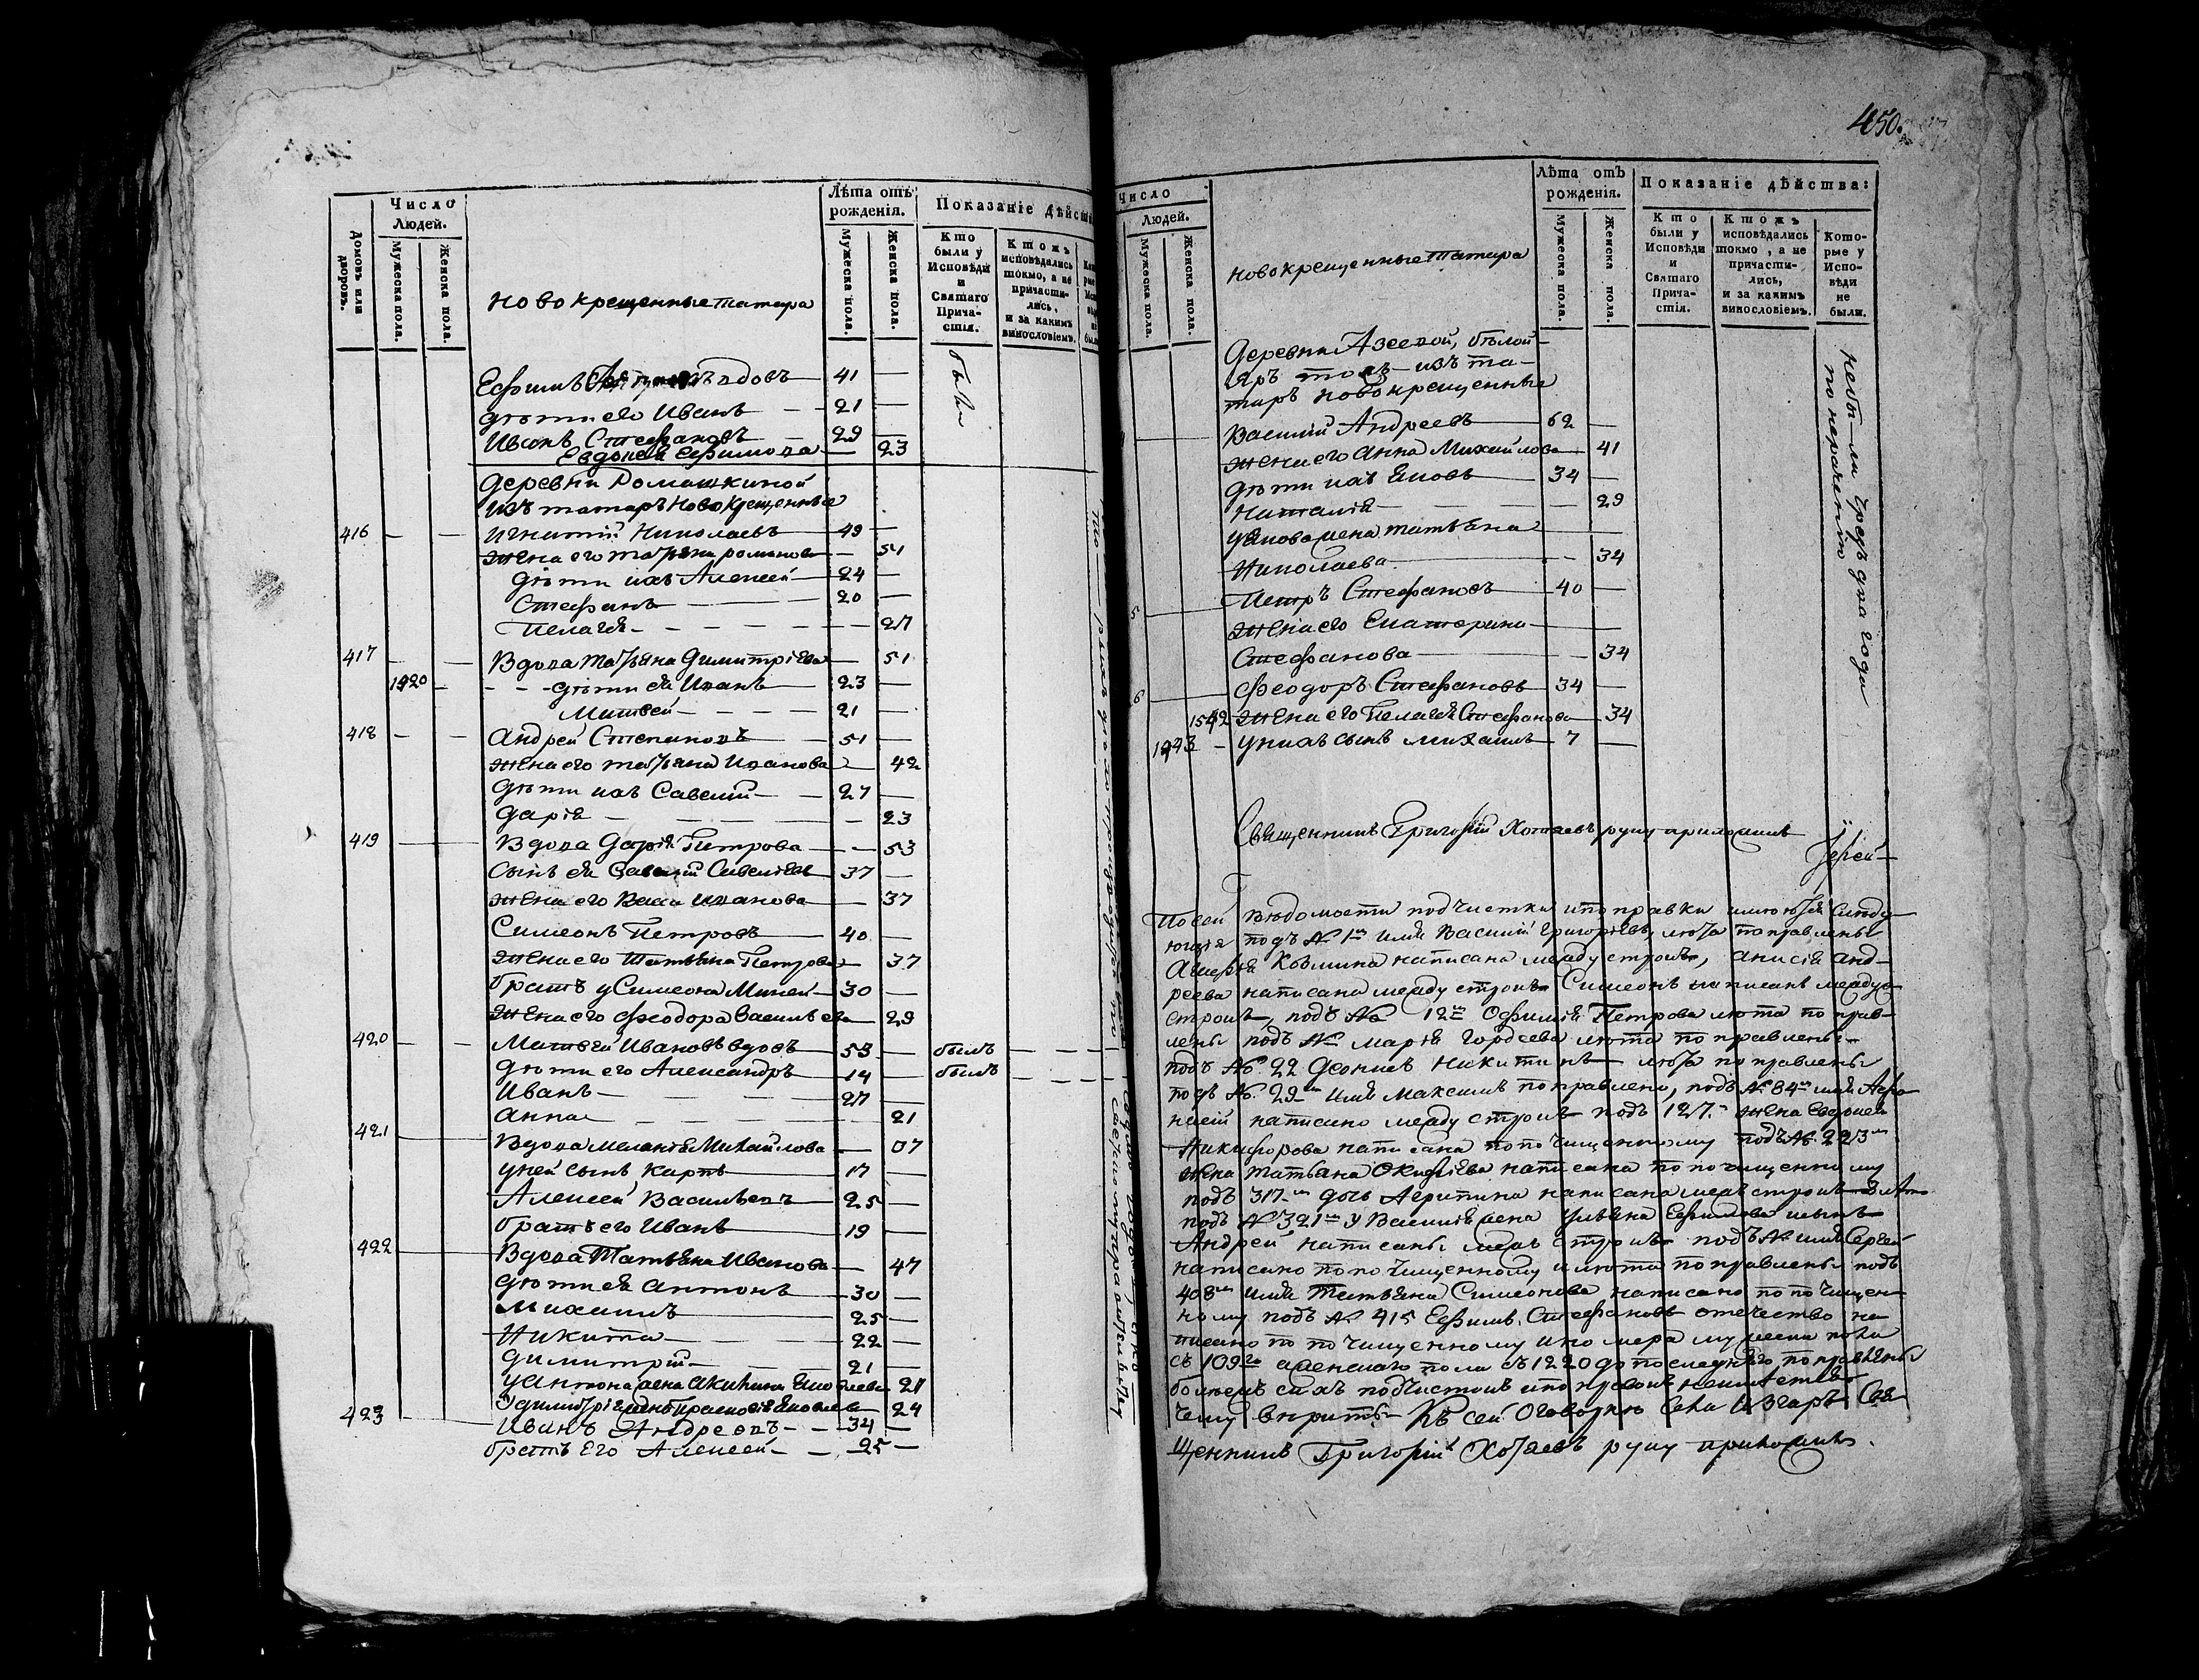 450.
Число
Людей.
Домовъ или
дворовъ.
Мужеска пола.
Женска пола.
новокрещенные татара
Лѣта отъ
рожденія.
Мужеска пола.
Женска пола.
Показаніе дѣйс
Кто
были у
Исповѣди
и
Святаго
Прича-
стія.
Ктожъ
исповѣдались
токмо, а не
причасти-
лись,
и за какимъ
винословіемъ.
Ефимъ вдовъ 41
дѣти его Иванъ 21
Иванъ Стефановъ 29
Евдокія Ефимова 23
были
деревни Ромашкиной
изъ татаръ новокрещенныя
416 Игнатій Николаевъ 49
жена его Татьяна Романова 51
дѣти ихъ Алексей 24
Стефанъ 20
Пелагея 27
417 Вдова Татьяна Димитріева 51
1920 дѣти ея Иванъ 23
Матвей 21
418 Андрей Степановъ 51
жена его Татьяна Иванова 42
дѣти ихъ Савелий 27
Дарія 23
419 Вдова Дарія Петрова 53
сынъ ея Савелий Савеліевъ 37
жена его Васса Иванова 37
Симеонъ Петровъ 40
жена его Татьяна Петрова 37
братъ у Симеона Михей 30
жена его Феодора Васильева 29
420 Матвей Ивановъ вдовъ 53 былъ
дѣти его Александръ 14 былъ
Иванъ 27
Анна 21
421 Вдова Меланія Михайлова 07
у ней сынъ Карпъ 17
Алексей Васильевъ 25
братъ его Иванъ 19
422 Вдова Татьяна Иванова 47
дѣти ея Антонъ 30
Михаилъ 25
Никита 22
Димитрій 21
у Антона жена Акилина Яковлева 21
У Димитрія жена Прасковія Яковлева 24
423 Иванъ Андреевъ 34
братъ его Алексей 25
Число
Людей.
Мужеска пола.
Женска пола.
новокрещенные татара
Лѣта отъ
рожденія.
Мужеска пола.
Женска пола.
Показаніе дѣйства:
Кто
были у
Исповѣди
и
Святаго
Прича-
стія.
Ктожъ
исповѣдались
токмо, а не
причасти-
лись,
и за какимъ
винословіемъ.
Кото-
рые у
Испо-
вѣди
не
были.
Деревни Азеевой, бѣлой
яръ тожъ изъ та-
таръ новокрещенные
Василій Андреевъ 62
жена его Анна Михайлова 41
дѣти ихъ Яковъ 34
Наталія 29
у Якова жена Татьяна
Николаева 34
5 Петръ Стефановъ 40
жена его Екатерина
Стефанова 34
6 Феодоръ Стефановъ 34
1542 жена его Пелагея Стефанова 34
1943 у нихъ сынъ Михаилъ 7
небыли чрезъ два года
по нерачению
Священникъ Григорій Хотяевъ руку приложилъ
Іерей
По сей вѣдомости подчистки и поправки имеются следу-
ющія подъ № 1м имя Василий Григоріевъ, лѣта поправлены
Козмина написана между строкъ, Анисія Анд-
реева написана между строкъ Симеонъ написанъ между
строкъ, подъ № 12м Офимія Петрова лѣта поправ-
лены подъ № Марія Гордеева лѣта поправлены
подъ № 22 Леонтей Никитинъ лѣта поправлены
подъ № 29м имя Максимъ поправлено, подъ № 84м имя Афа-
насій написано между строкъ подъ 127. жена Евдокея
Никифорова написана по почищенному подъ № 223м
жена Татьяна написана по почищенному
подъ 317м дочь Агрипина написана межъ строкъ
подъ № 321м у Василія жена Ульяна Ефимова сынъ
Андрей написаны межъ строкъ подъ № имя Сергей
написано по почищенному и лѣта поправлены подъ
408м имя Татьяна Симеонова написано по почищен-
ному подъ № 415 Ефимъ Стефановъ отечество на-
писано по почищенному и номера мужеска пола
съ 109го а женскаго пола съ 1220 до последняго поправлены
более сихъ подчистокъ и поправокъ неимеется
чему верить Къ сей оговорке села Азгаръ Свя-
щенникъ Григорій Хотяевъ руку приложилъ.